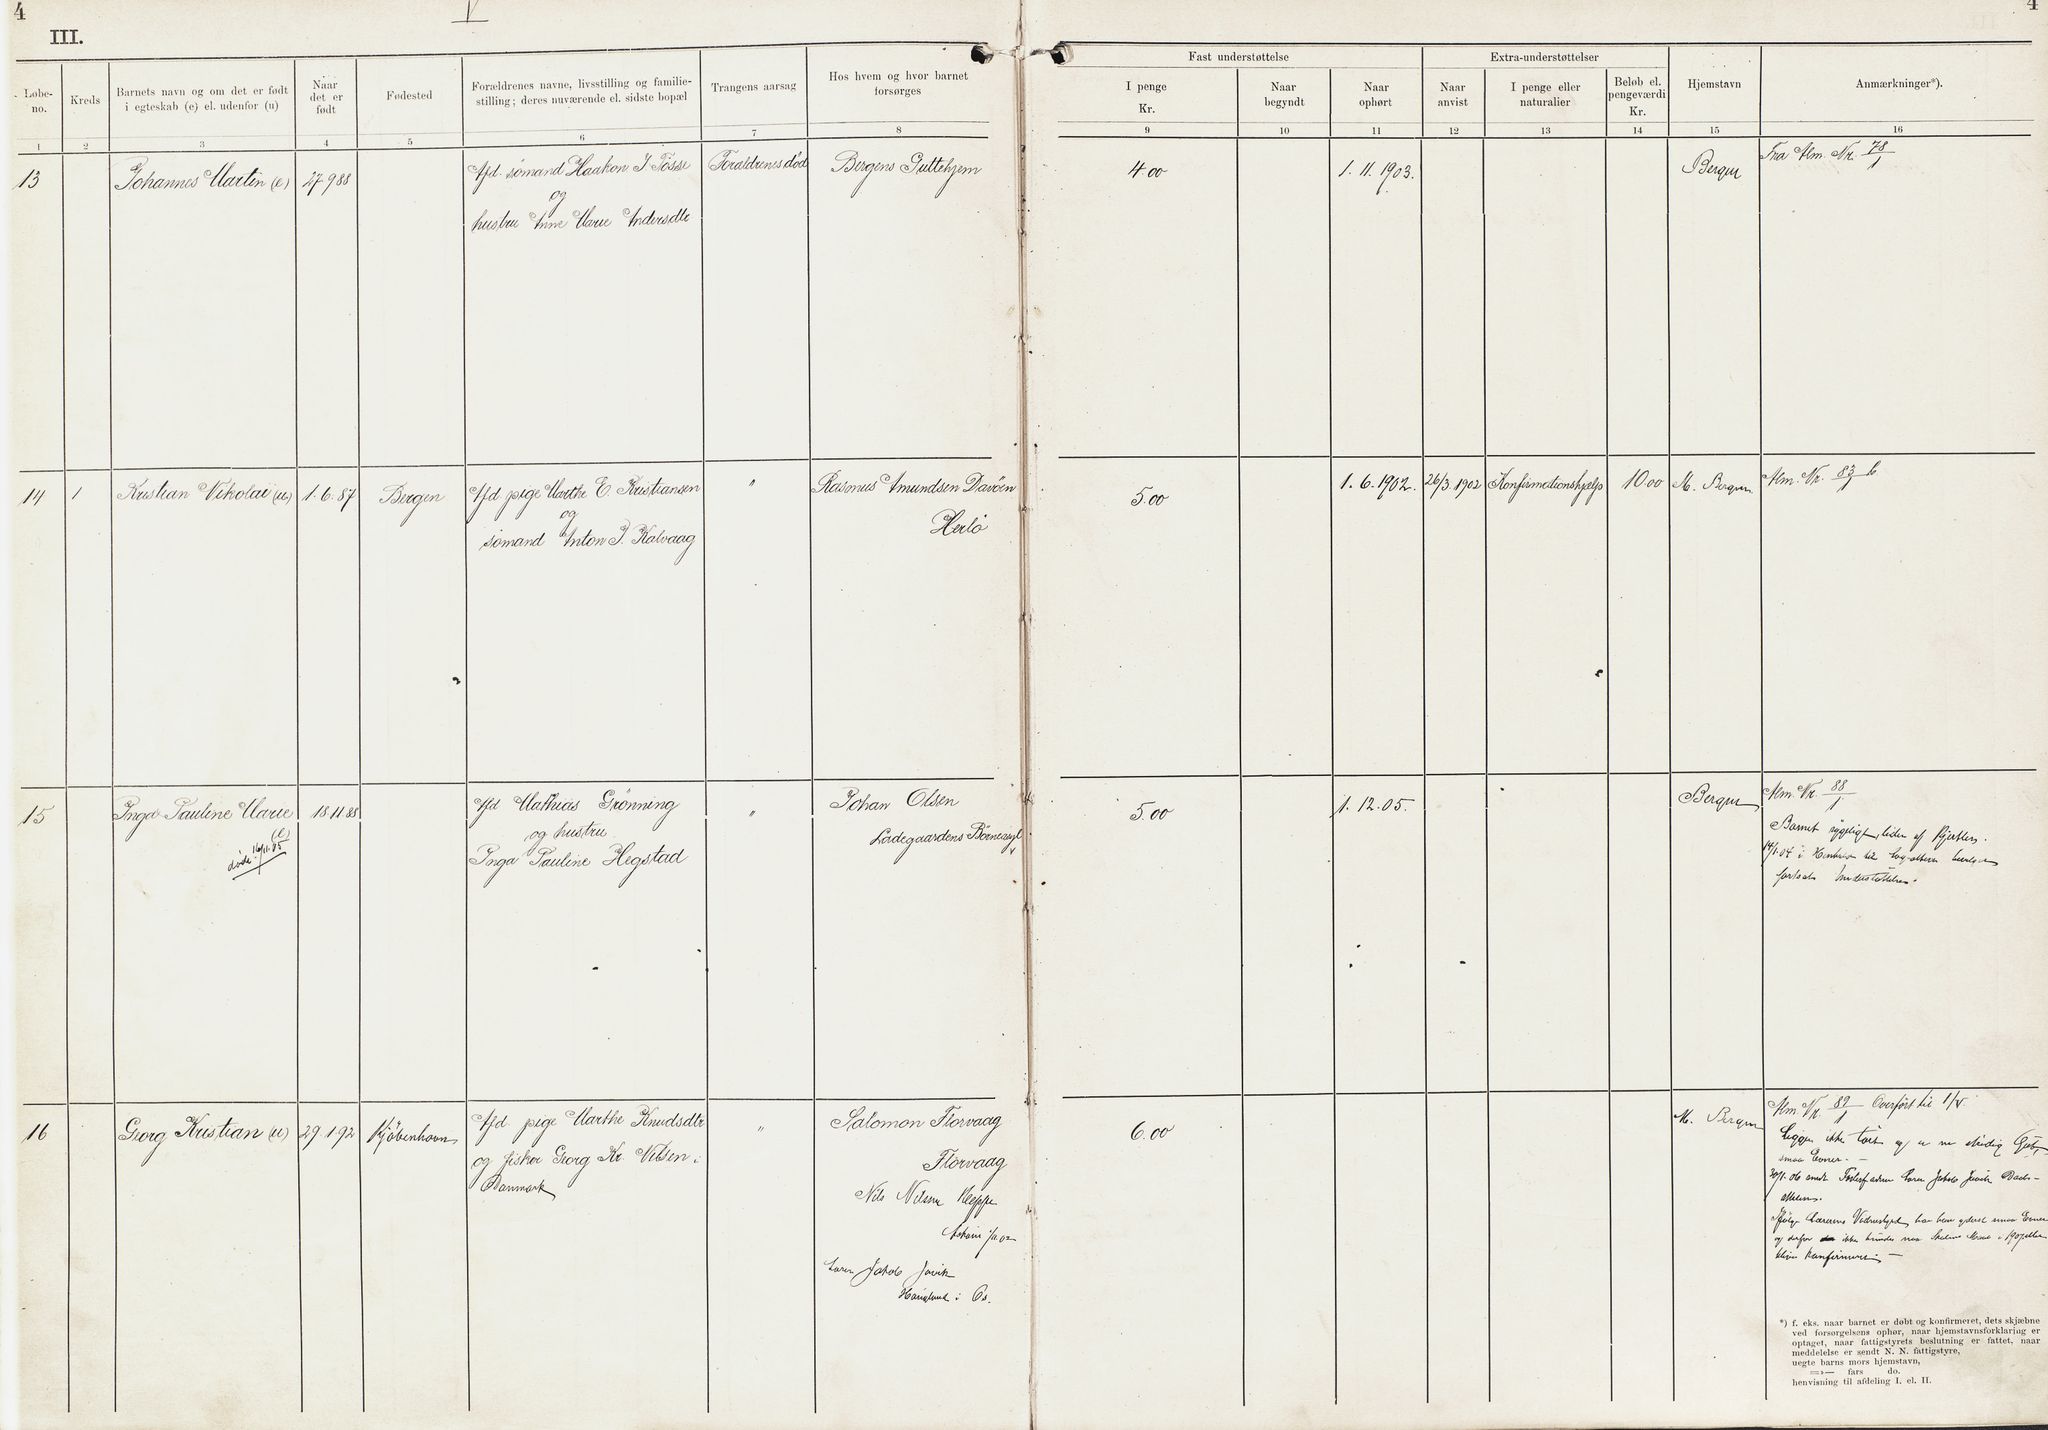 4
V
4
III.
Løbe-
no.
Kreds
Barnets navn og om det er født
i egteskab (e) el. udenfor (u)
Naar
det er
født
Fødested
Forældrenes navne, livsstilling og familie-
stilling; deres nuværende el. sidste bopæl
Trangens aarsag
Hos hvem og hvor barnet
forsørges
Fast understøttelse
I penge
Kr.
Naar
begyndt
Naar
ophørt
Extra-understøttelser
Naar
anvist
I penge eller
naturalier
Beløb el.
pengeværdi
Kr.
Hjemstavn
Anmærkninger*).
1 2 3 4 5 6 7 8 9 10 11 12 13 14 15 16
13
Johannes Martin (e)
27.9.88
Afd. sømand Haakon J. Tøsse
og
hustru Anne Marie Andersdtr
Forældrenes død
Bergens Guttehjem
4.00
1. 11. 1903.
Bergen
Fra Alm. Nr. 78/1
14
1
Kristian Nikolai (u)
1.6.87
Bergen
Afd pige Marthe E. Kristiansen
og
sømand Anton J. Kalvaag
"
Rasmus Amundsen Davøen
Herlø
5.00
1. 6. 1902.
26/3. 1902
Konfirmationshjælp
10 00
M. Bergen
Alm. Nr. 83/1 b
15
Inga Pauline Marie
(e)
død. 16/11.05
18.11.88
Afd Mathias Grønning
og hustru
Inga Pauline Hegstad
"
Johan Olsen
Ladegaardens Børneasyl
5.00
1. 12. 05.
Bergen
Alm. Nr. 88/1
Barnet sygeligt, lider af Hjertten.
14/1.04 i Henhold til Læg-attest
fortsat Understøttelse.
16
Georg Kristian (u)
29.1.92
Kjøbenhavn
Afd pige Marthe Knudsdtr
og fisker Georg Kr. Nilsen i
Danmark
"
Salomon Florvaag
Florvaag
Nils Nilssen Kleppe
Askøen 1/11.02
Lærer Jakob Jøvik
Haugland i Os.
6.00
M. Bergen
Alm. Nr. 89/1 Overført til 1/V
Ligger ikke tørt og er en Gut,
smaa Evner. —
30/1.06 Fosterfaderen Lærer Jakob Jøvik
Ifølge Lærerens Vidnesbyrd har han yderst smaa Evner
og derfor ikke Skolens Maal i 1907 eller
blive konfirmeret —
*) f. eks. naar barnet er døbt og konfirmeret, dets skjæbne
ved forsørgelsens ophør, naar hjemstavnsforklaring er
optaget, naar fattigstyrets beslutning er fattet, naar
meddelelse er sendt N. N. fattigstyre,
uegte barns mors hjemstavn,
—»— fars do.
henvisning til afdeling I. el. II.